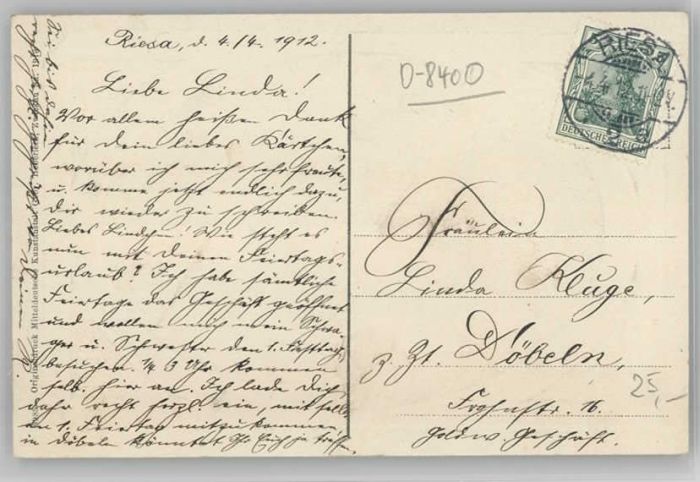 Riesa, d. 4./4. 1912.
Liebe Linda!
Vor allem heißen Dank
für Dein liebes Kärtchen,
worüber ich mich sehr freute,
u. komme jetzt endlich dazu,
Dir wieder zu schreiben.
Liebes Lindchen! Wie steht es
nun mit Deinem Feiertags-
urlaub? Ich habe sämtliche
Feiertage das Geschäft geöffnet
und wollen mich mein Schwa-
ger u. Schwester den 1. Festtag
besuchen. 1/4 3 Uhr kommen
selb. hier an. Ich lade Dich
daher recht herzl. ein, mit selb.
am 1. Feiertag mitzukommen,
in Döbeln könntet Ihr Euch ja treffen.
D-8400
RIESA
DEUTSCHES REICH
Fräulein
Linda Kluge,
z. Zt. Döbeln,
str. 16.
Goldw. Geschäft.
25,-